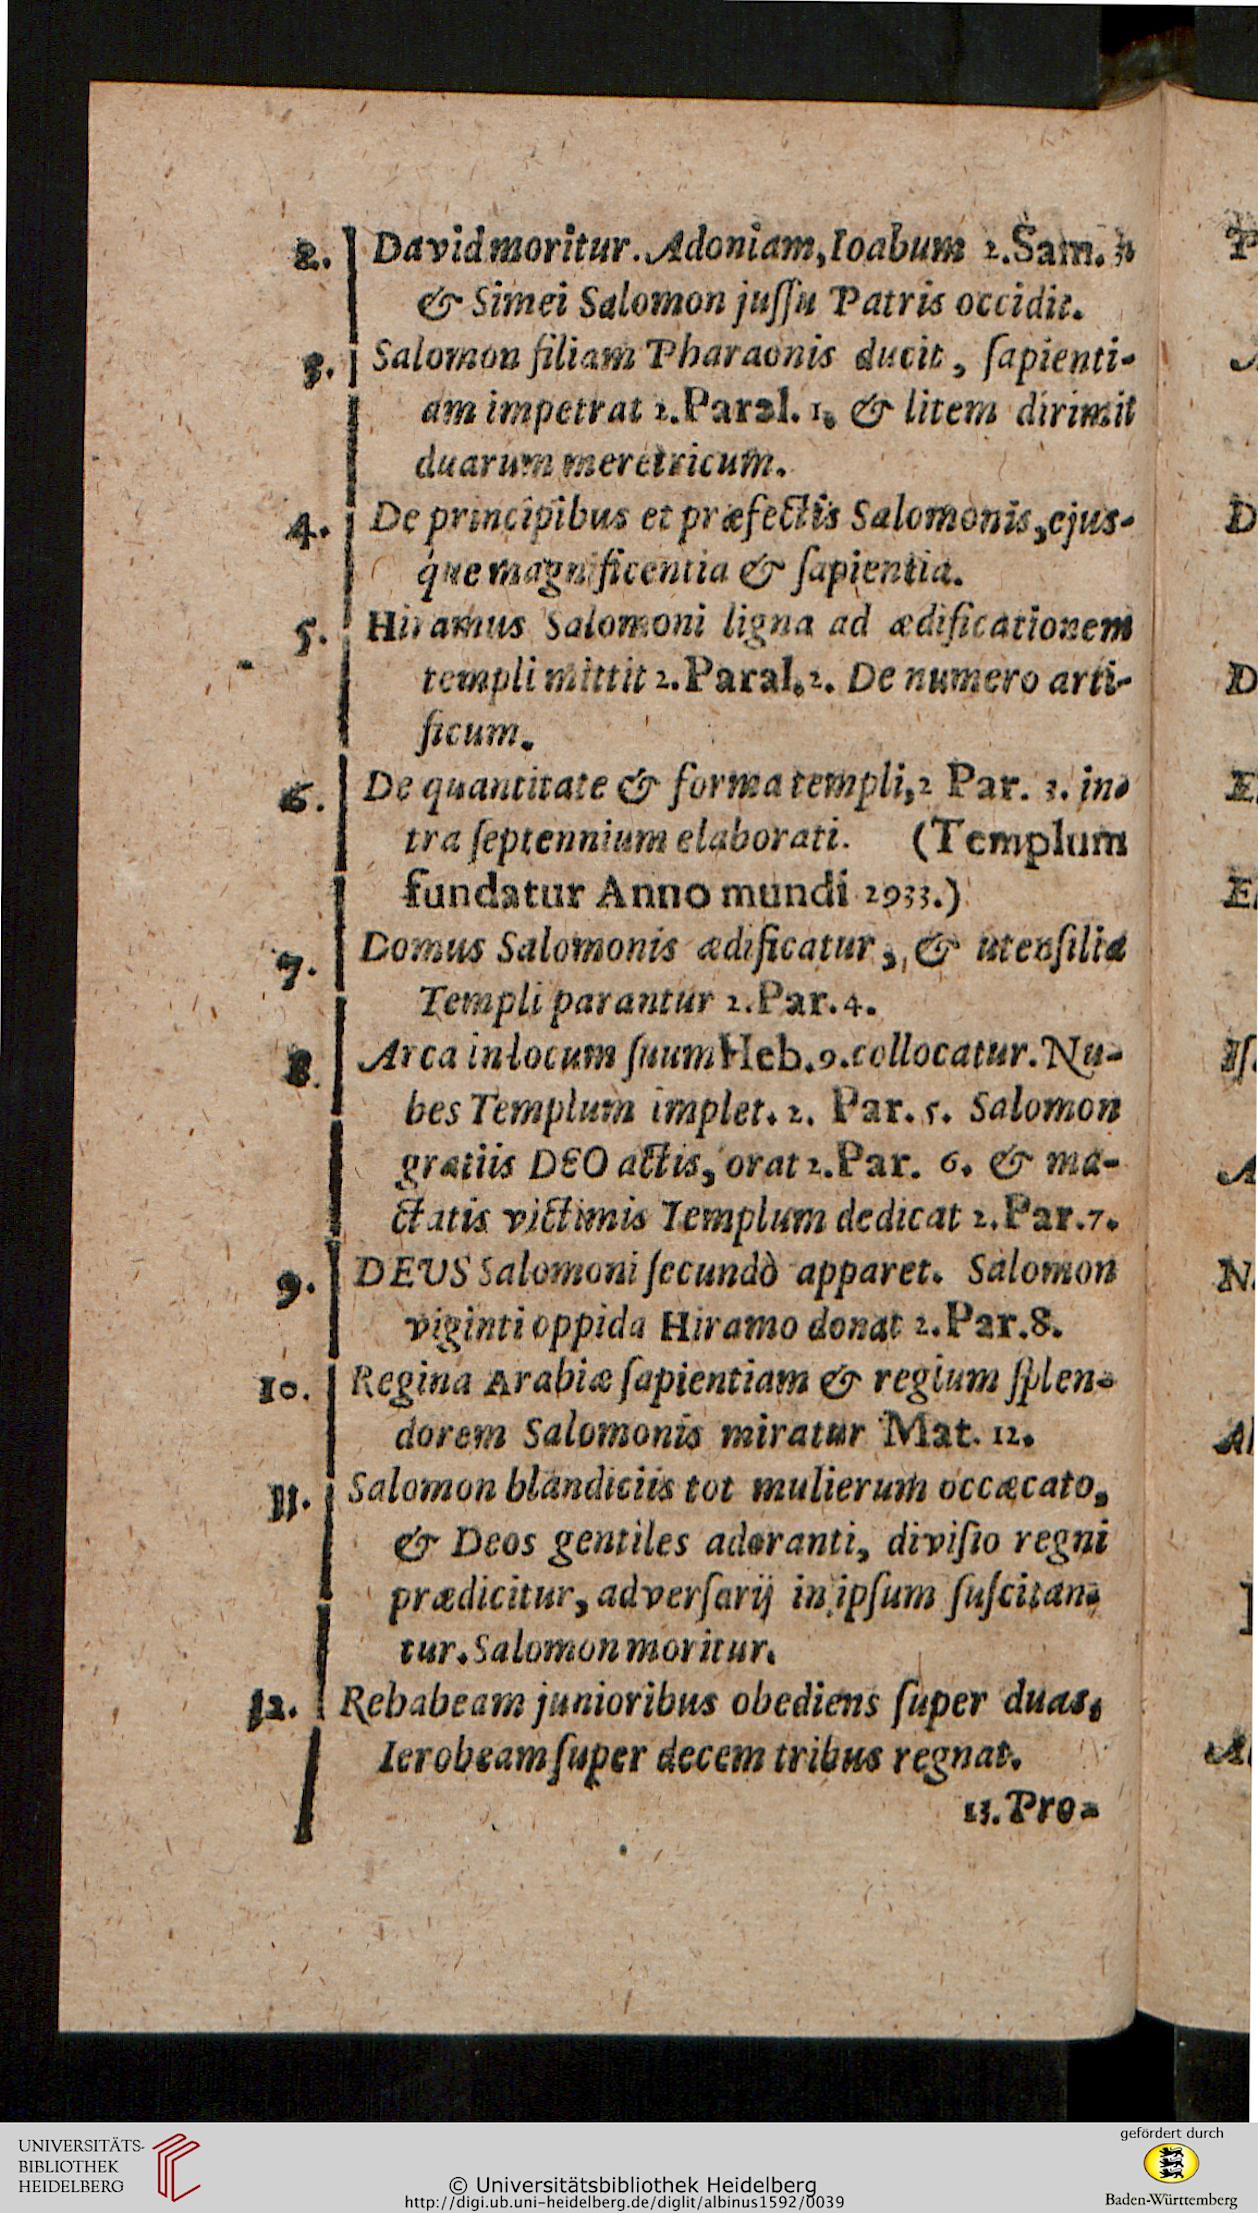 2. David moritur. Adoniam, Ioabum 2. Sam. 3.
& Simei Salomon juſſu Patris occidit.
3. Salomon filiam Pharaonis ducit, ſapienti-
am impetrat 2. Paral. 1. & litem dirimit
duarum meretricum.
4. De principibus et præfectis Salomonis, ejus-
que magnificentia & ſapientia.
5. Hiramus Salomoni ligna ad ædificationem
templi mittit 2. Paral. 2. De numero arti-
ficum.
6. De quantitate & forma templi, 2 Par. 3. in-
tra ſeptennium elaborati. (Templum
fundatur Anno mundi 2933.)
7. Domus Salomonis ædificatur, & utenſilia
Templi parantur 2. Par. 4.
8. Arca in locum ſuum Heb. 9. collocatur. Nu-
bes Templum implet. 2. Par. 5. Salomon
gratiis DEO actis, orat 2. Par. 6. & ma-
ctatis victimis Templum dedicat 2. Par. 7.
9. DEUS Salomoni ſecundò apparet. Salomon
viginti oppida Hiramo donat 2. Par. 8.
10. Regina Arabiæ ſapientiam & regium ſplen-
dorem Salomonis miratur Mat. 12.
11. Salomon blandiciis tot mulierum occæcato,
& Deos gentiles adoranti, diviſio regni
prædicitur, adverſarij in ipſum ſuſcitan-
tur. Salomon moritur.
12. Rehabeam junioribus obediens ſuper duas,
Ierobeam ſuper decem tribus regnat.
13. Pro-
UNIVERSITÄTS-
BIBLIOTHEK
HEIDELBERG
© Universitätsbibliothek Heidelberg
http://digi.ub.uni-heidelberg.de/diglit/albinus1592/0039
gefördert durch
Baden-Württemberg